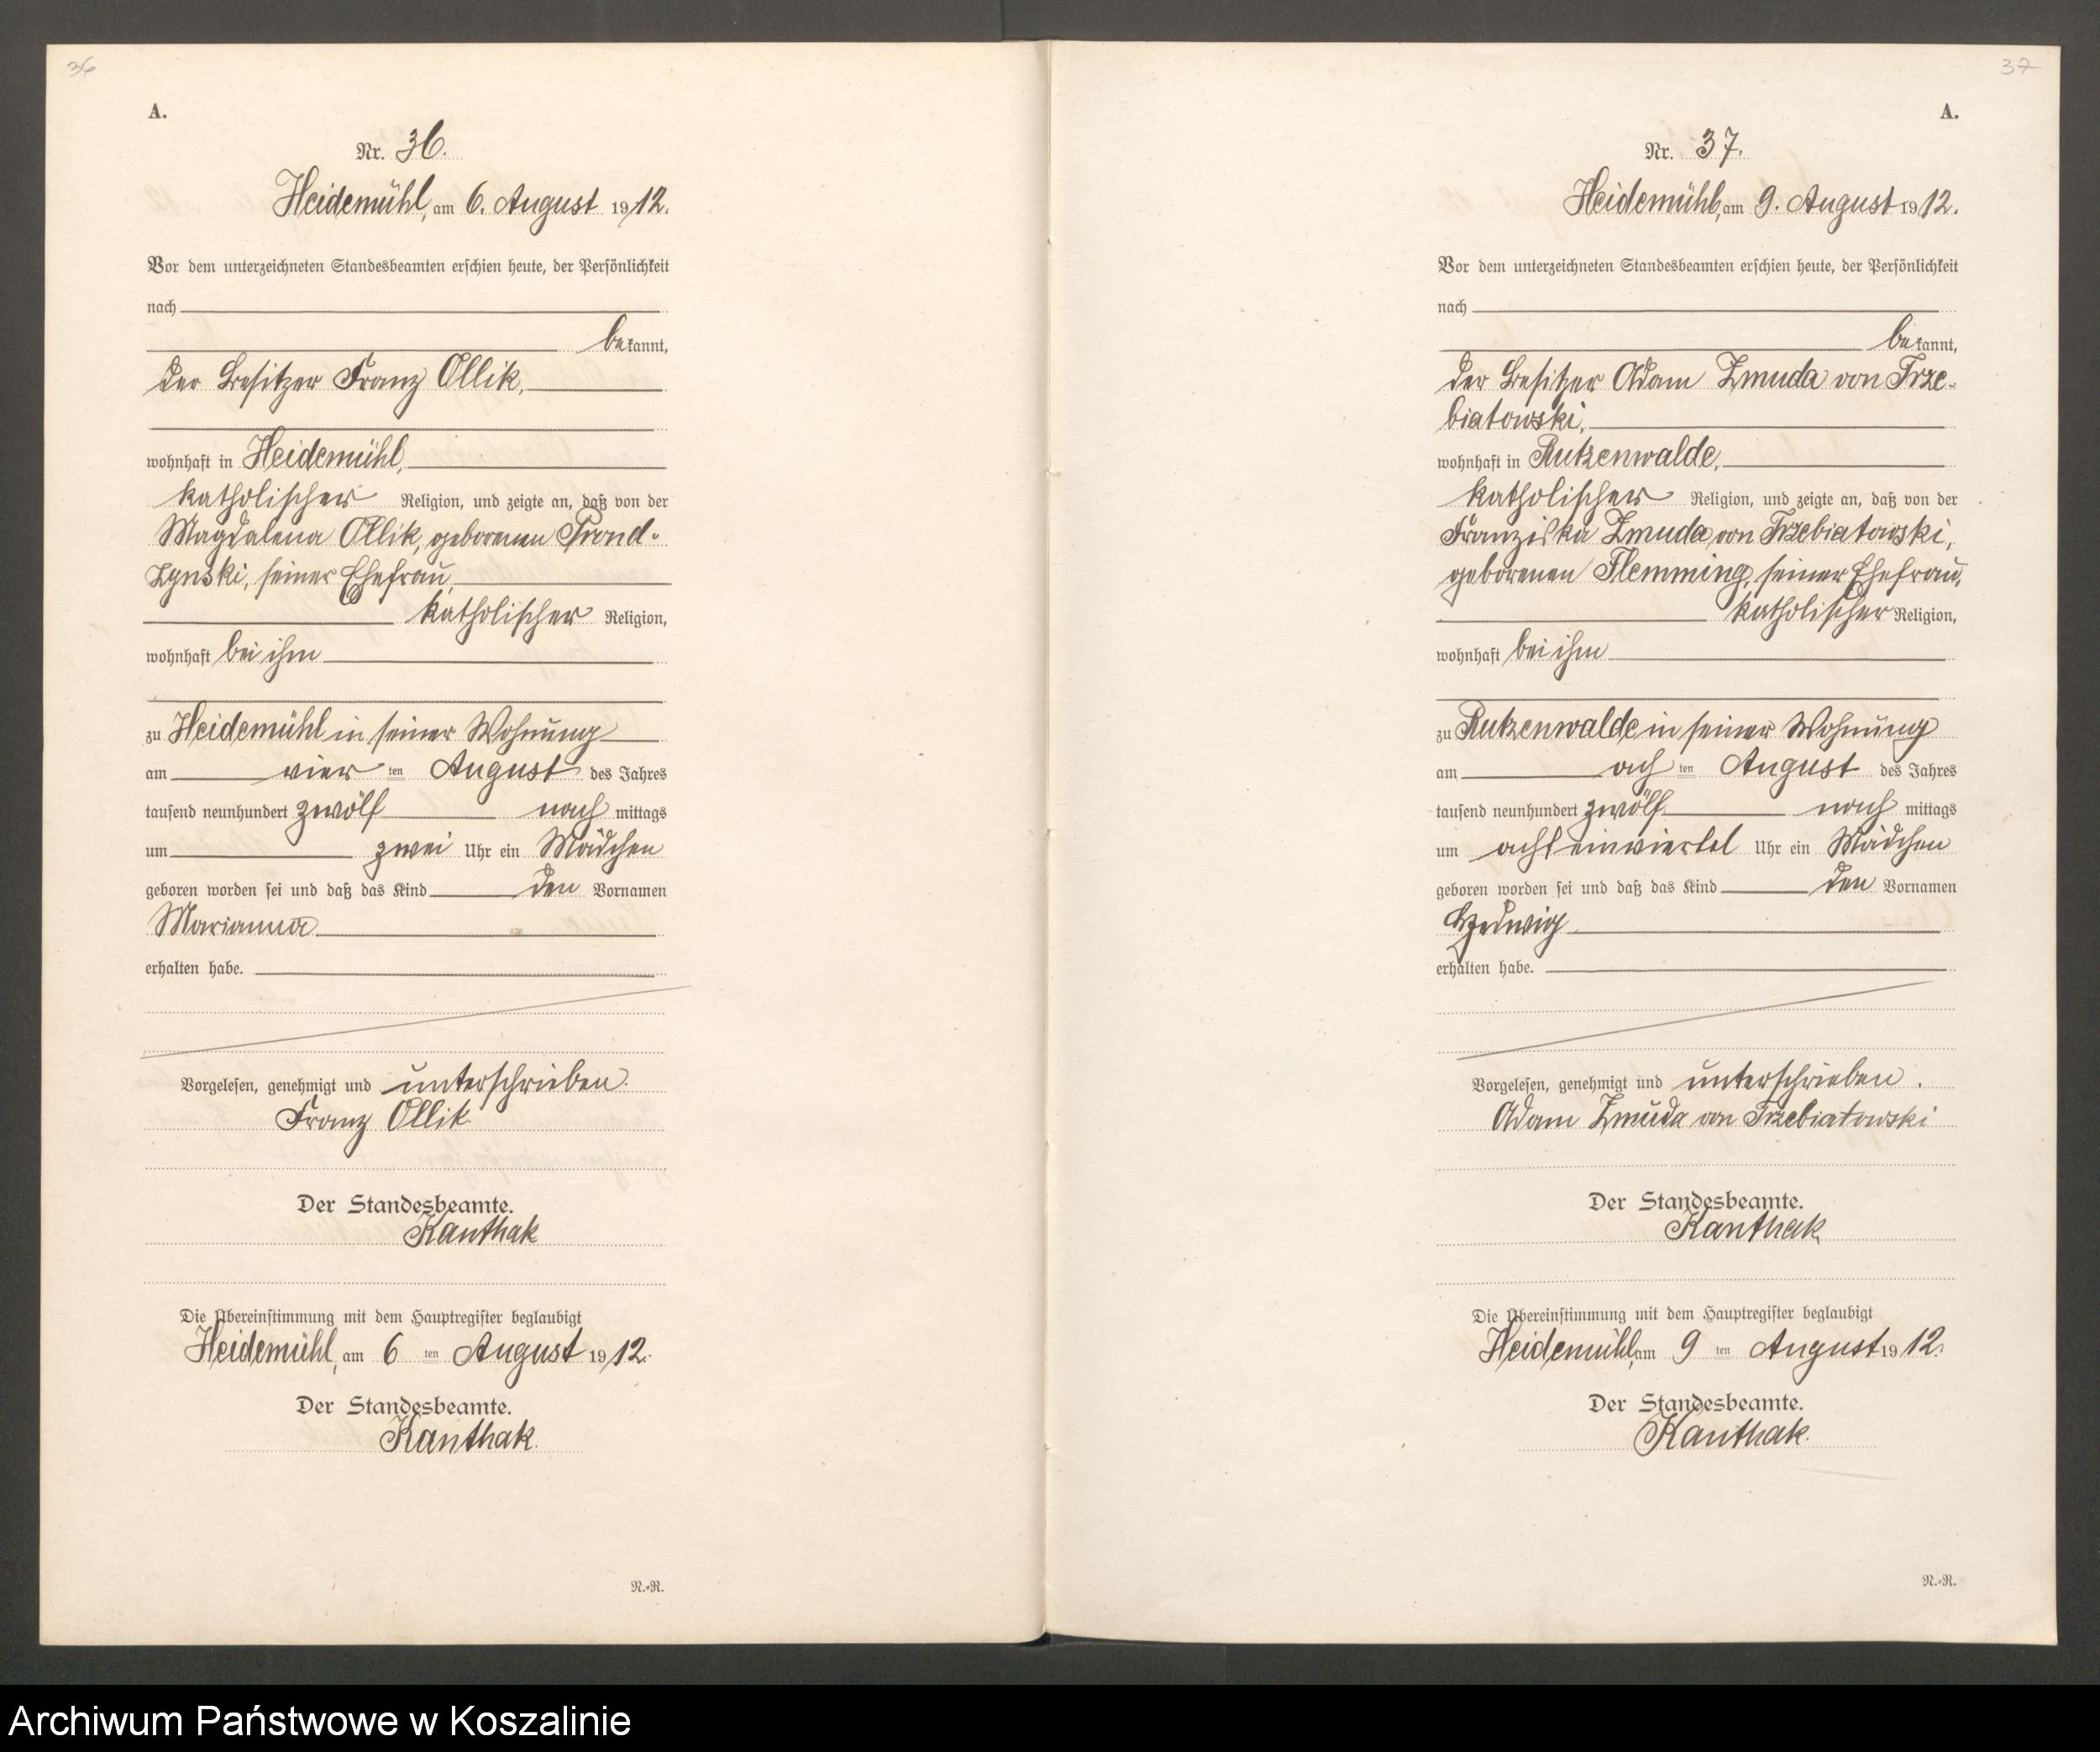 36
A.
Nr. 36.
Heidemühl, am 6. August 1912.
Vor dem unterzeichneten Standesbeamten erschien heute, der Persönlichkeit
nach
bekannt,
der Besitzer Franz Ollik,
wohnhaft in Heidemühl,
katholischer Religion, und zeigte an, daß von der
Magdalena Ollik, geborenen Prond-
zynski, seiner Ehefrau,
katholischer Religion,
wohnhaft bei ihm
zu Heidemühl in seiner Wohnung
am vier ten August des Jahres
tausend neunhundert zwölf nach mittags
um zwei Uhr ein Mädchen
geboren worden sei und daß das Kind den Vornamen
Marianna
erhalten habe.
Vorgelesen, genehmigt und unterschrieben.
Franz Ollik
Der Standesbeamte.
Kanthak
Die Übereinstimmung mit dem Hauptregister beglaubigt
Heidemühl, am 6 ten August 1912.
Der Standesbeamte.
Kanthak.
N.-R.
37
A.
Nr. 37.
Heidemühl, am 9. August 1912.
Vor dem unterzeichneten Standesbeamten erschien heute, der Persönlichkeit
nach
bekannt,
der Besitzer Adam Zmuda von Trze-
biatowski,
wohnhaft in Rutzenwalde,
katholischer Religion, und zeigte an, daß von der
Franziska Zmuda von Trzebiatowski,
geborenen Flemming, seiner Ehefrau,
katholischer Religion,
wohnhaft bei ihm
zu Rutzenwalde in seiner Wohnung
am ach ten August des Jahres
tausend neunhundert zwölf nach mittags
um acht einviertel Uhr ein Mädchen
geboren worden sei und daß das Kind den Vornamen
Hedwig
erhalten habe.
Vorgelesen, genehmigt und unterschrieben.
Adam Zmuda von Trzebiatowski
Der Standesbeamte.
Kanthak
Die Übereinstimmung mit dem Hauptregister beglaubigt
Heidemühl, am 9 ten August 1912.
Der Standesbeamte.
Kanthak.
N.-R.
Archiwum Państwowe w Koszalinie